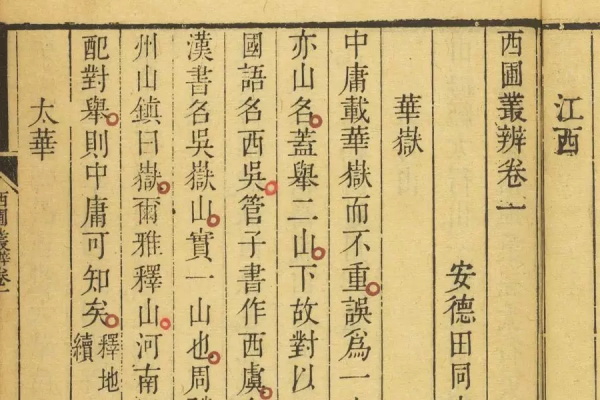 江西
西圃叢辨卷一
安德田同
華嶽
中庸載華嶽而不重誤爲一
亦山名蓋舉二山下故對以
國語名西吳管子書作西虞
漢書名吳嶽山實一山也周
州山鎮曰嶽爾雅釋山河南
配對舉則中庸可知矣釋地
續
太華
西圃叢辨卷一